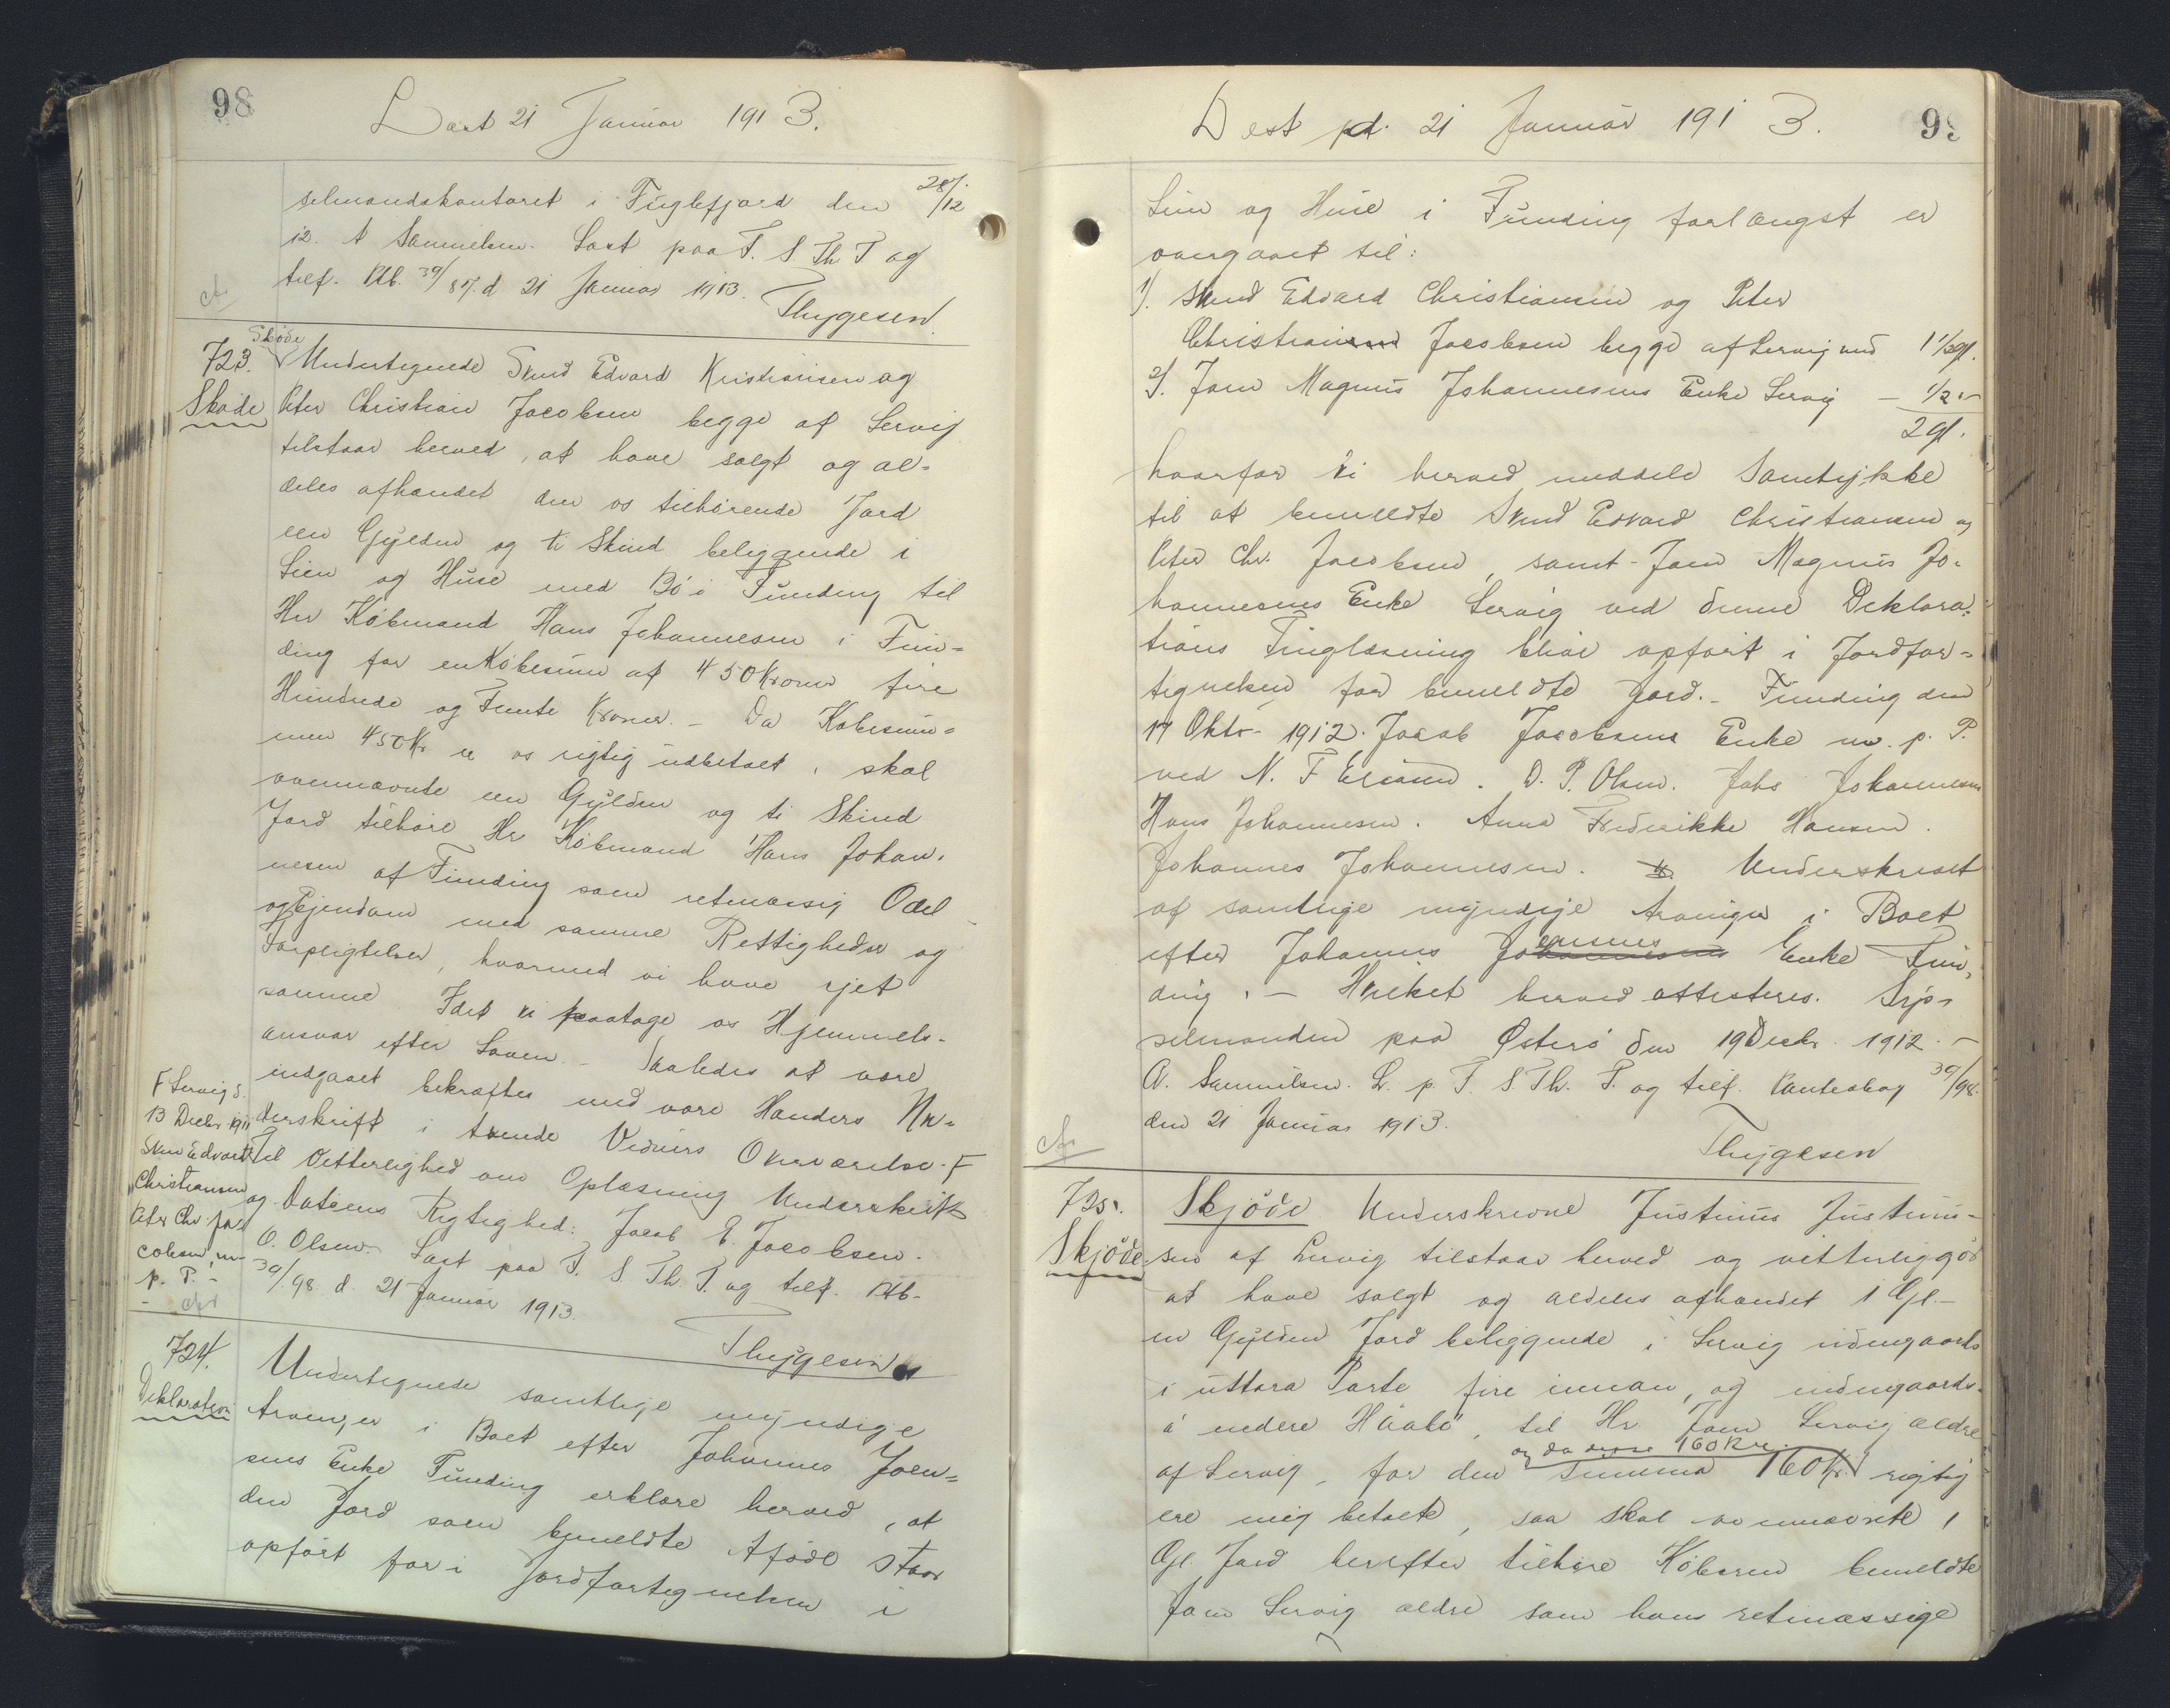 98
Læst 21 Januar 1913.
selmandskontoret i Fuglefjord den 28/12
12. A Samuelsen. Læst paa F. S. Th. T og
tilf. Ptb. 39/87. d 21 Januar 1913.
Thygesen.
723. Skøde Undertegnede Svend Edvard Kristiansen og
Skøde Peter Christian Jacobsen begge af Lervig
tilstaar herved, at have solgt og al=
deles afhændet den os tilhørende Jord
een Gylden og ti Skind beliggende i
Lien og Huse med Bö i Funding til
Hr Købmand Hans Johannesen i Fun=
ding for en Købesum af 450 Kroner fire
Hundrede og Femti Kroner. – Da Købesum=
men 450 Kr er os rigtig udbetalt, skal
ovennævnte een Gylden og ti Skind
Jord tilhøre Hr Købmand Hans Johan,
nesen af Funding som retmæssig Odel
og Ejendom med samme Rettigheder og
Forpligtelser, hvormed vi have ejet
samme Idet vi paatage os Hjemmels-
ansvar efter Loven. – Saaledes at være
indgaaet bekræftes med vore Hænders Un=
derskrift i tvende Vidners Overværelse. F
Til Vitterlighed om Oplæsning Underskrift
og Dateens Rigtighed: Jacob E. Jacobsen.
O. Olsen. Læst paa F. S. Th. T. og tilf. Ptb-
39/98 d. 21 Januar 1913.
Thygesen
F Lervig d.
13 Decbr 1911
Svend Edvard
Christiansen
Peter Chr. Ja=
cobsen, m-
p. P. -
724. Undertegnede samtlige myndige
Deklaration Arvinger i Boet efter Johannes Joen=
sens Enke Funding erklære herved, at
den Jord som bemeldte Afdöde staar
opført for i Jordfortegnelsen i
Læst pd. 21 Januar 1913. 99
Lien og Huse i Funding forlængst er
overgaaet til:
1). Svend Edvard Christiansen og Peter
Christian Jacobsen begge af Lervig med 1 1/2 gl.
2). Joen Magnus Johannesens Enke Lervig – 1/2 –
2 gl.
hvorfor vi herved meddele Samtykke
til at bemeldte Svend Edvard Christiansen og
Peter Chr. Jacobsen, samt Joen Magnus Jo-
hannesens Enke Lervig ved denne Deklara-
tions Tinglæsning blive opført i Jordfor=
tegnelsen for bemeldte Jord. – Funding den
17 Oktbr 1912. Jacob Jacobsens Enke m. p. P.
ved N. F Eliasen. D. P. Olsen. Johs Johannesen
Hans Johannesen. Anna Frederikke Hansen.
Johannes Johannesen. Underskrevet
af samtlige myndige Arvinger i Boet
efter Johannes Joensens Enke Fun,
ding. – Hvilket herved attesteres. Sys-
selmanden paa Østerö den 19 Decbr. 1912. –
A. Samuelsen. L. p. F. S. Th. T. og tilf. Pantebog 39/98.
den 21 Januar 1913.
Thygesen
725. Skjöde Underskrevne Justinus Justinus-
Skjöde sen af Lervig tilstaar herved og vitterliggör
at have solgt og aldeles afhændet 1 Gl.-
en Gylden Jord beliggende i Lervig udengaards
i uttara Parte fire innan, og indengaards
á nedere Haalö, til Hr Joen Lervig ældre
af Lervig, for den Summa 160 Kr. og da disse 160 Kr. rigtig
ere mig betalte, saa skal ovennævnte 1
Gl. Jord herefter tilhøre Köberen bemeldte
Joen Lervig ældre som hans retmæssige